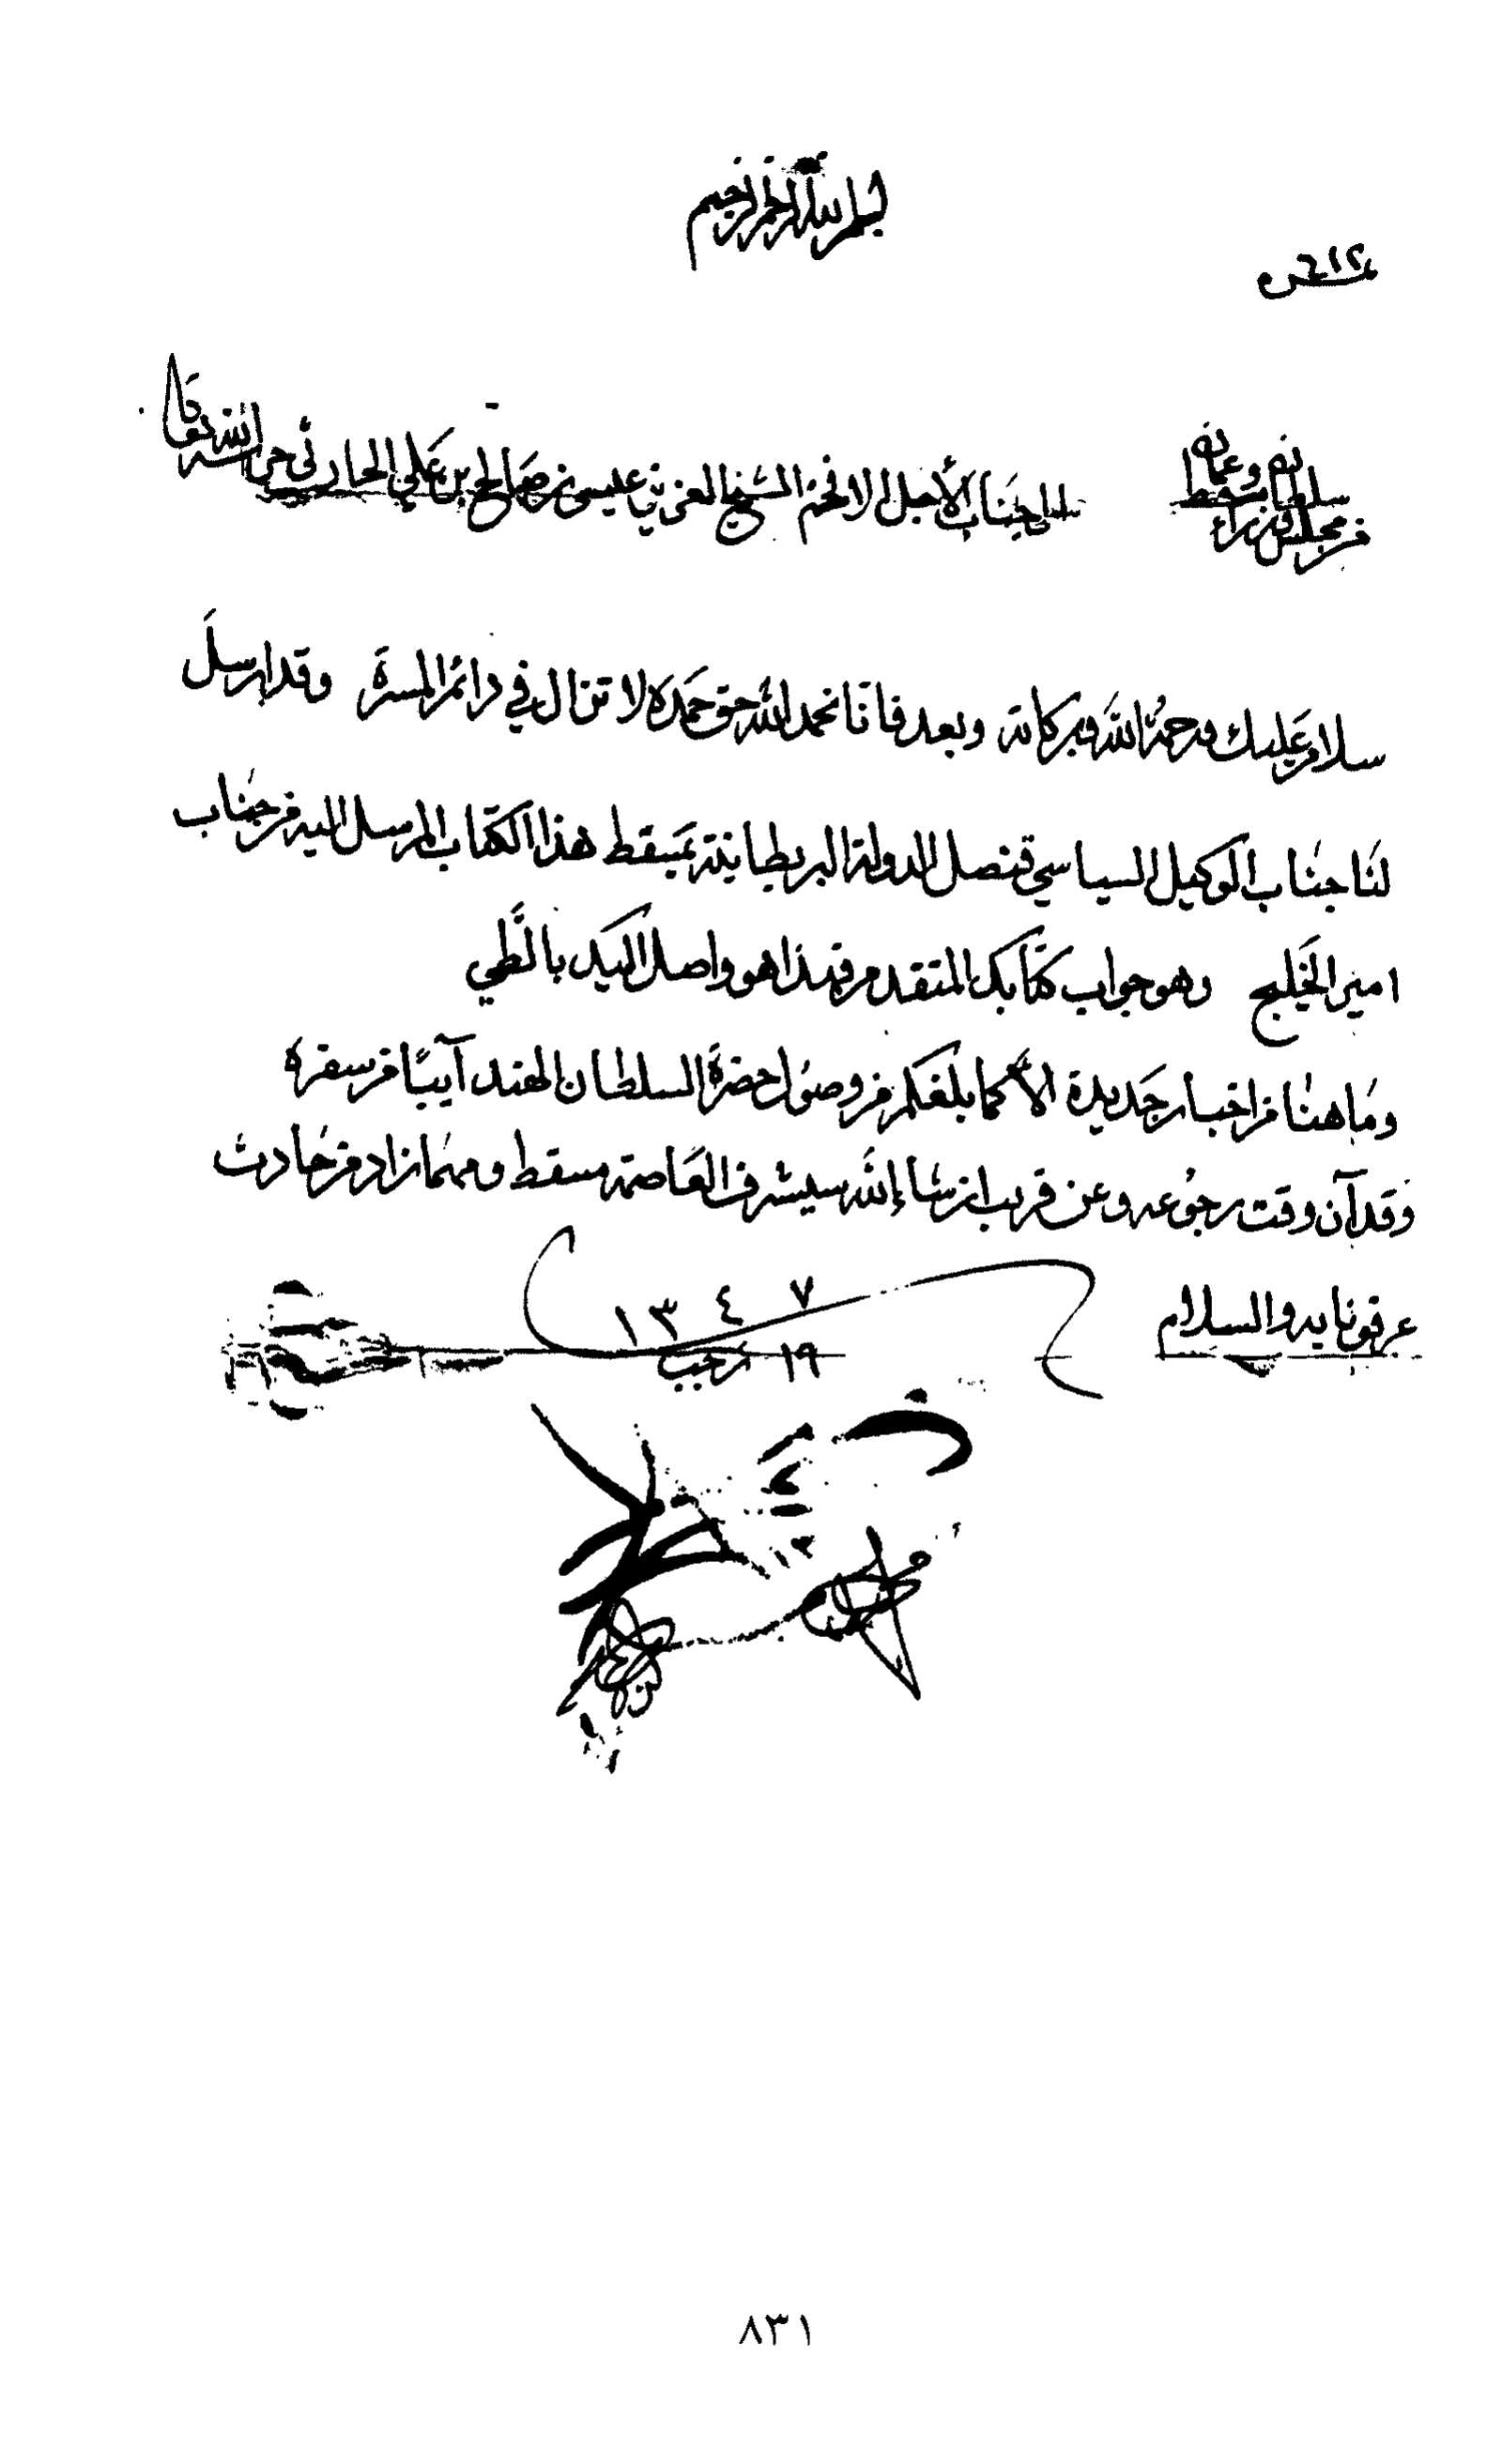 بسم الله الرحمن الرحيم
من مجلس وزراء سلطانية مسقط وعمان
الى جناب الأجل الافخم الشيخ العزيز عيسى بن صالح بن علي الحارثي حرسه الله تعالى
سلام عليك ورحمة الله وبركاته وبعد فاننا نحمد الله حق حمده لا نزال في دائر المسرة وقد ارسل
لنا جناب الوكيل السياسي قنصل الدولة البريطانية بمسقط هذا الكتاب المرسل اليه من جناب
امير الخليج وهو جواب كتابك المتقدم فهذا هو واصل اليك بالطي
وما هنا من اخبار جديدة الا كما بلغكم من وصول حضرة السلطان الهند آيبًا من سفره
وقد آن وقت رجوعه وعن قريب ان شاء الله سيشرف العاصمة مسقط ومهما زاد من حادث
عرفونا به والسلام
١٣٤٧
١٩ رجب
٨٣١